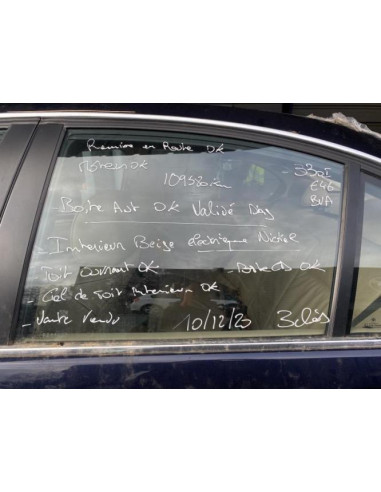 Remise en Route OK
Moteur OK
109580 km
- 330I
E46
BVA
- Boîte Aut OK Validé Diag
- Interieur Beige électrique Nickel
- Toit ouvrant OK
- Porte Gs OK
- Ciel de Toit Interieur OK
- Vente Vendu
10/12/20
3 clés